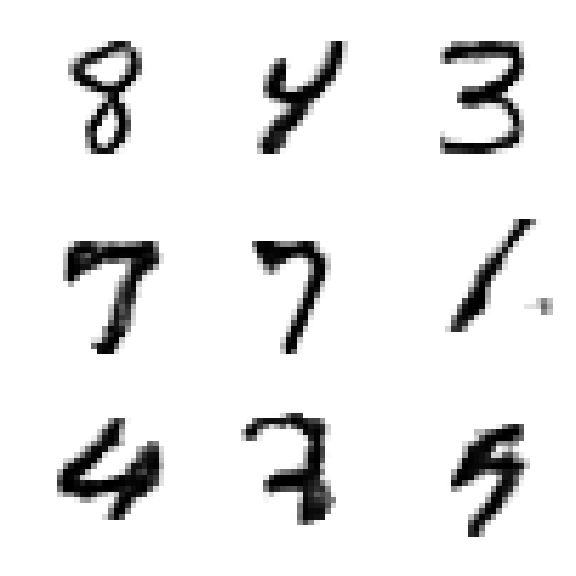 8 4 3
7 7 1
4 3 5